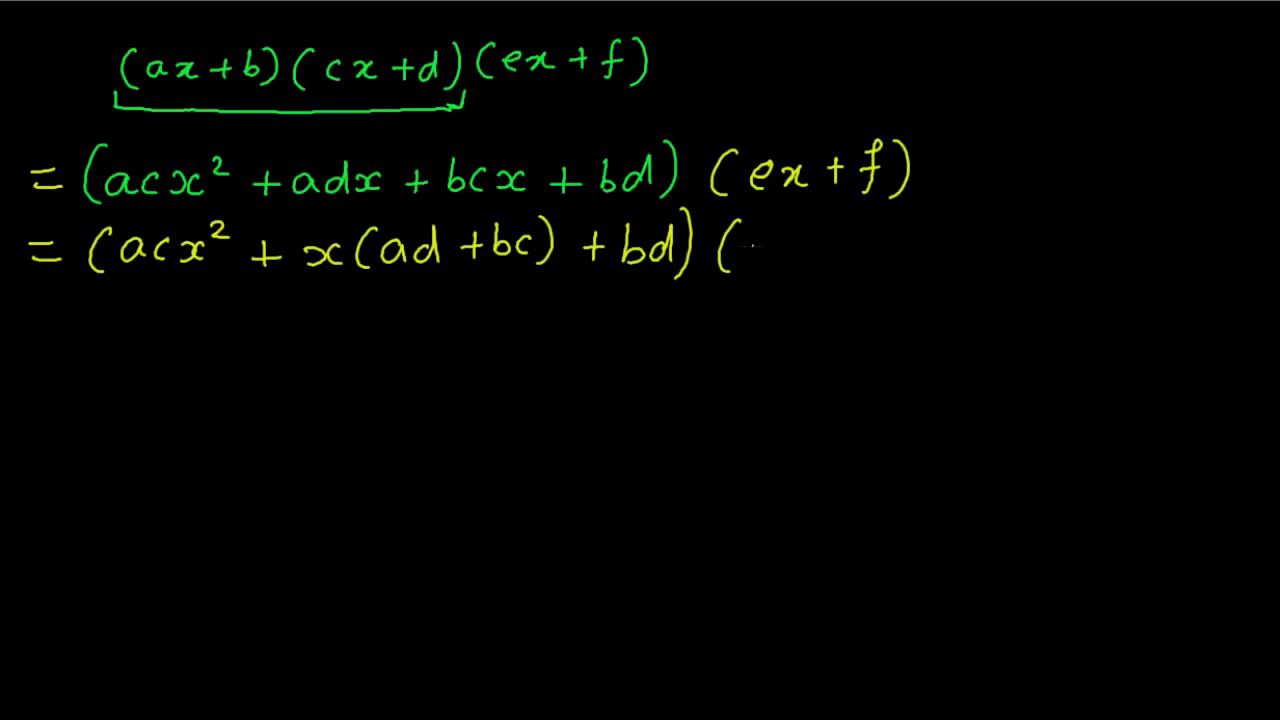 (ax+b)(cx+d)(ex+f)
= (acx² + adx + bcx + bd) (ex+f)
= (acx² + x(ad+bc) + bd) (